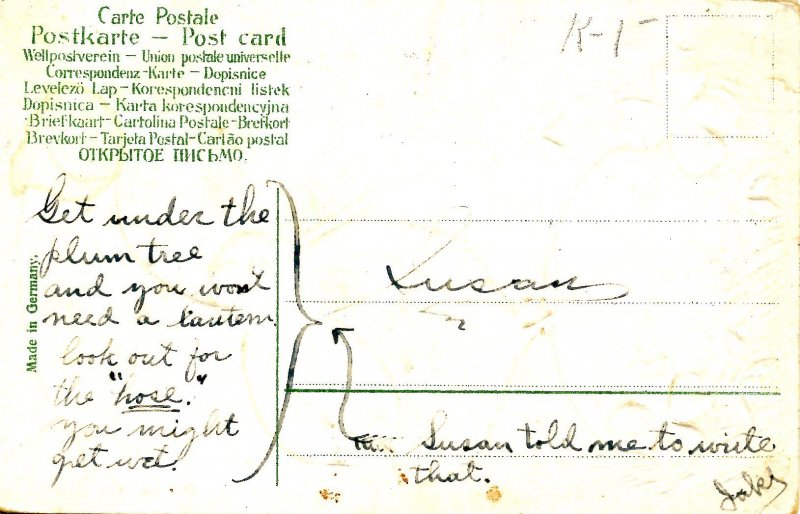 Carte Postale
Postkarte – Post card
Weltpostverein – Union postale universelle
Correspondenz-Karte – Dopisnice
Levelező Lap – Korespondencni listek
Dopisnica – Karta korespondencyjna
Briefkaart – Cartolina Postale – Brefkort
Brevkort – Tarjeta Postal – Cartão postal
ОТКРЫТОЕ ПИСЬМО.
K-1
Made in Germany.
Get under the
plum tree
and you won't
need a lantern.
look out for
the "hose."
you might
get wet.
Susan
Susan told me to write
that.